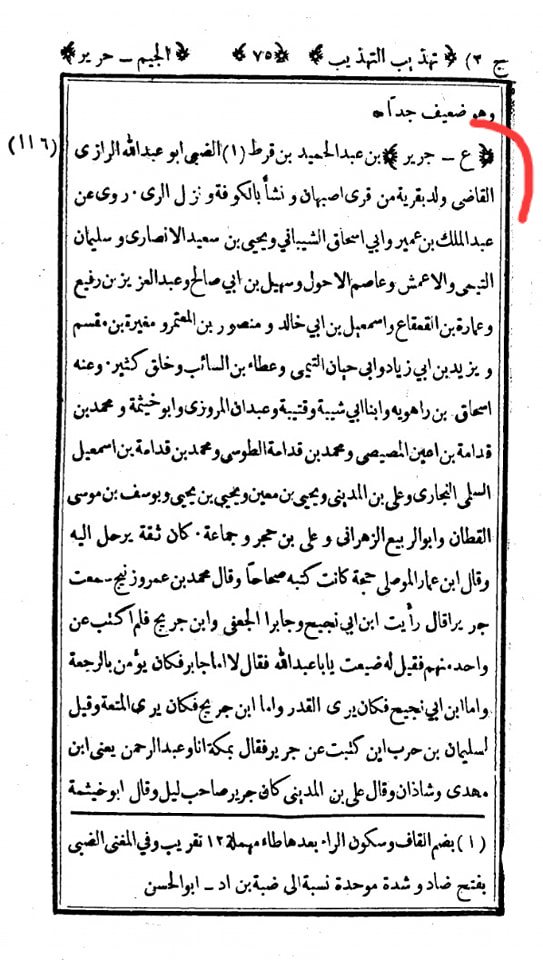 ج ٢) ﴿ تهذيب التهذيب ﴾ ﴿٧٥﴾ ﴿ الجيم – حرير ﴾
وهو ضعيف جداً ٭
﴿ ع – جرير ﴾ بن عبدالحميد بن قرط (١) الضبى ابو عبدالله الرازى (١١٦)
القاضى ولد بقرية من قرى اصبهان و نشأ بالكوفة و نزل الرى · روى عن
عبدالملك بن عمير وابي اسحاق الشيباني ويحيى بن سعيد الانصارى و سليمان
التيمى والاعمش وعاصم الاحول وسهيل بن ابي صالح وعبدالعزيز بن رفيع
وعمارة بن القعقاع واسمعيل بن ابي خالد و منصور بن المعتمر و مغيرة بن مقسم
و يزيد بن ابي زياد وابي حيان التيمى وعطاء بن السائب وخلق كثير · وعنه
اسحاق بن راهويه وابنا ابي شيبة وقتيبة وعبدان المروزى وابو خيثمة و محمد بن
قدامة بن اعين المصيصى و محمد بن قدامة الطوسى ومحمد بن قدامة بن اسمعيل
السلمى البخارى وعلى بن المدينى ويحيى بن معين ويحيى بن يحيى ويوسف بن موسى
القطان وابو الربيع الزهرانى و على بن حجر و جماعة · كان ثقة يرحل اليه
وقال ابن عمار الموصلى حجة كانت كتبه صحاحا وقال محمد بن عمرو زنيج سمعت
جريرا قال رأيت ابن ابي نجيح وجابرا الجعفى وابن جريج فلم اكتب عن
واحد منهم فقيل له ضيعت يا با عبدالله فقال لا اما جابر فكان يؤمن بالرجعة
واما ابن ابي نجيح فكان يرى القدر واما ابن جريج فكان يرى المتعة وقيل
لسليمان بن حرب اين كتبت عن جرير فقال بمكة انا وعبد الرحمن يعنى ابن
مهدى وشاذان وقال على بن المدينى كان جرير صاحب ليل وقال ابو خيثمة
(١) بضم القاف وسكون الراء بعدها طاء مهملة ١٢ تقريب وفي المغنى الضبى
بفتح ضاد و شدة موحدة نسبة الى ضبة بن اد – ابو الحسن